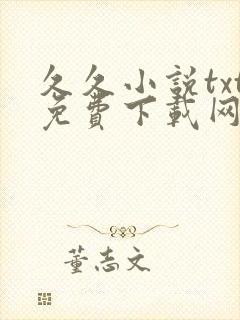 久久小説txt
免費下載网
董志文